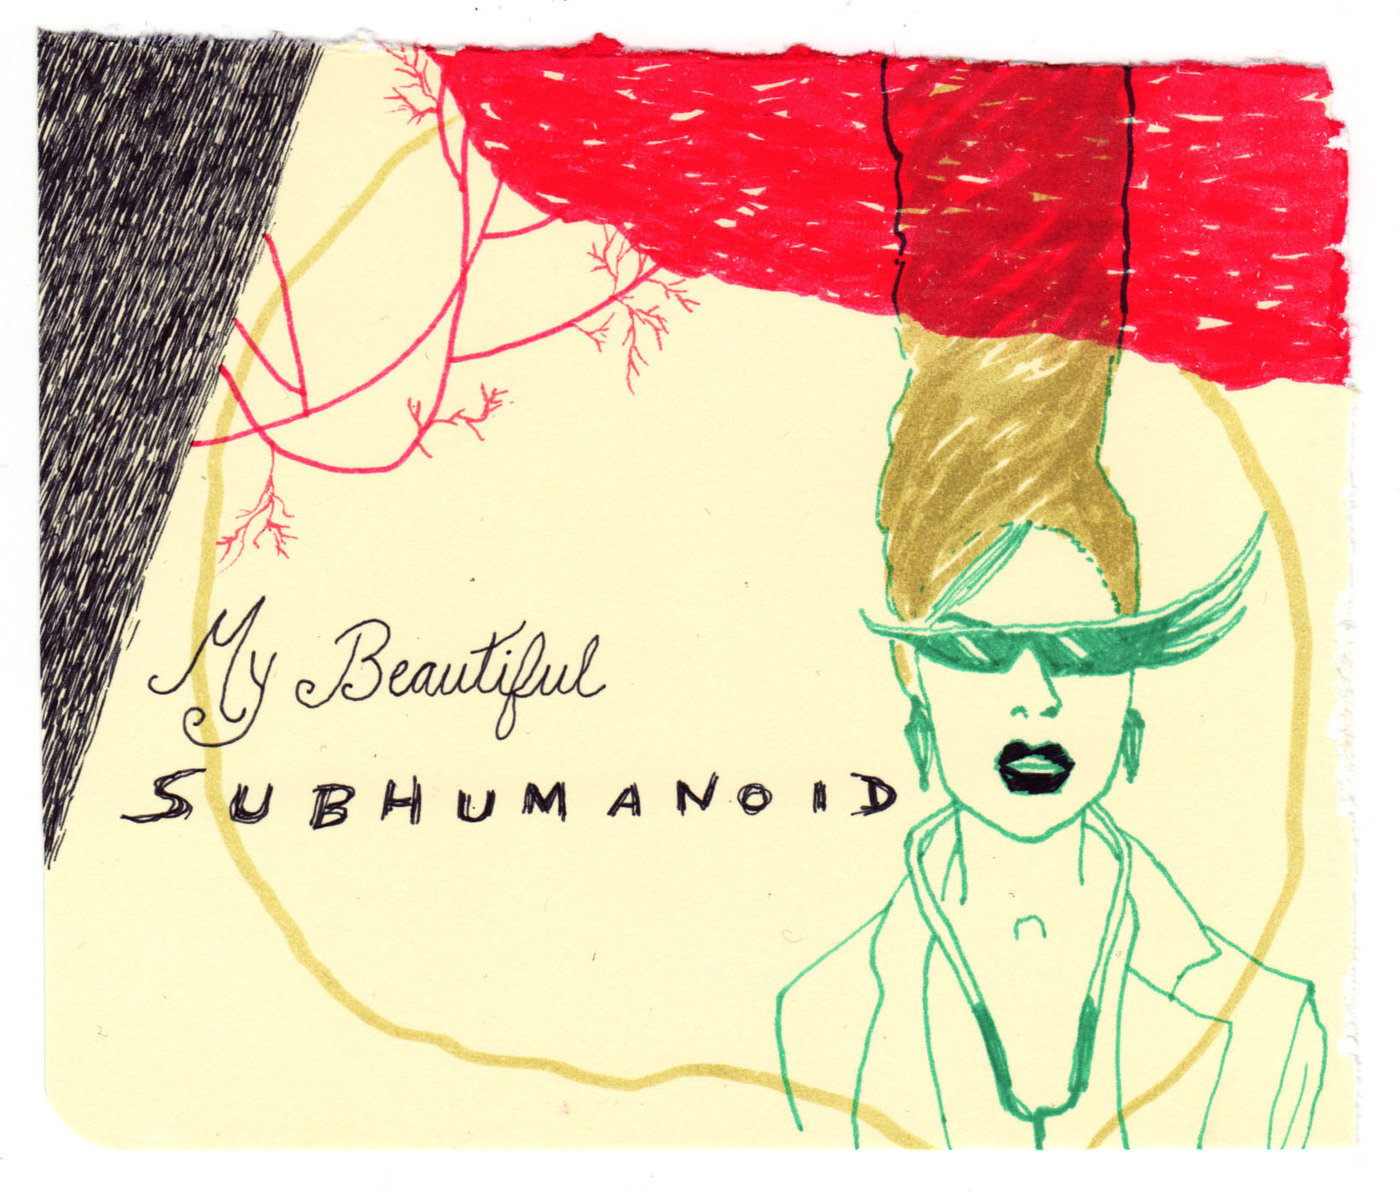 My Beautiful
SUBHUMANOID